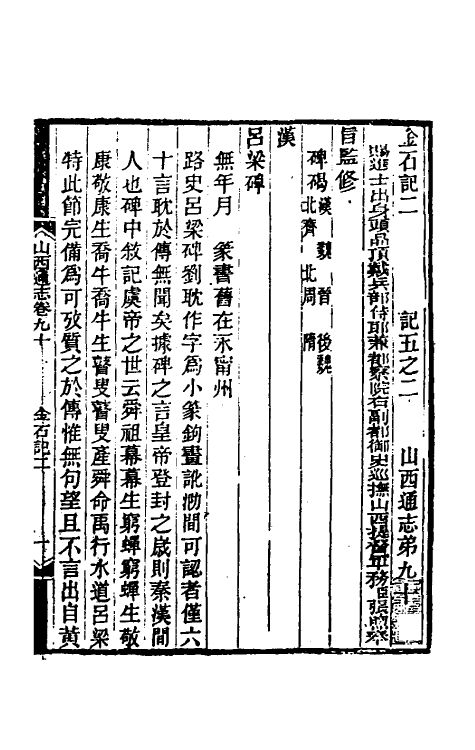 金石記二　記五之二　山西通志第九十
賜進士出身頭品頂戴兵部侍郎兼都察院右副都御史巡撫山西提督軍務臣張煦奉
旨監修
碑碣漢　魏　晉　後魏
北齊　北周　隋
漢
呂梁碑
無年月　篆書舊在永甯州
路史呂梁碑劉耽作字爲小篆鉤畫訛泐間可認者僅六
十言耽於傳無聞矣據碑之言皇帝登封之歲則秦漢間
人也碑中敘記虞帝之世云舜祖幕幕生窮蟬窮蟬生敬
康敬康生喬牛喬牛生瞽叟瞽叟產舜命禹行水道呂梁
特此節完備爲可攷質之於傳惟無句望且不言出自黃
山西通志卷九十　金石記二　一